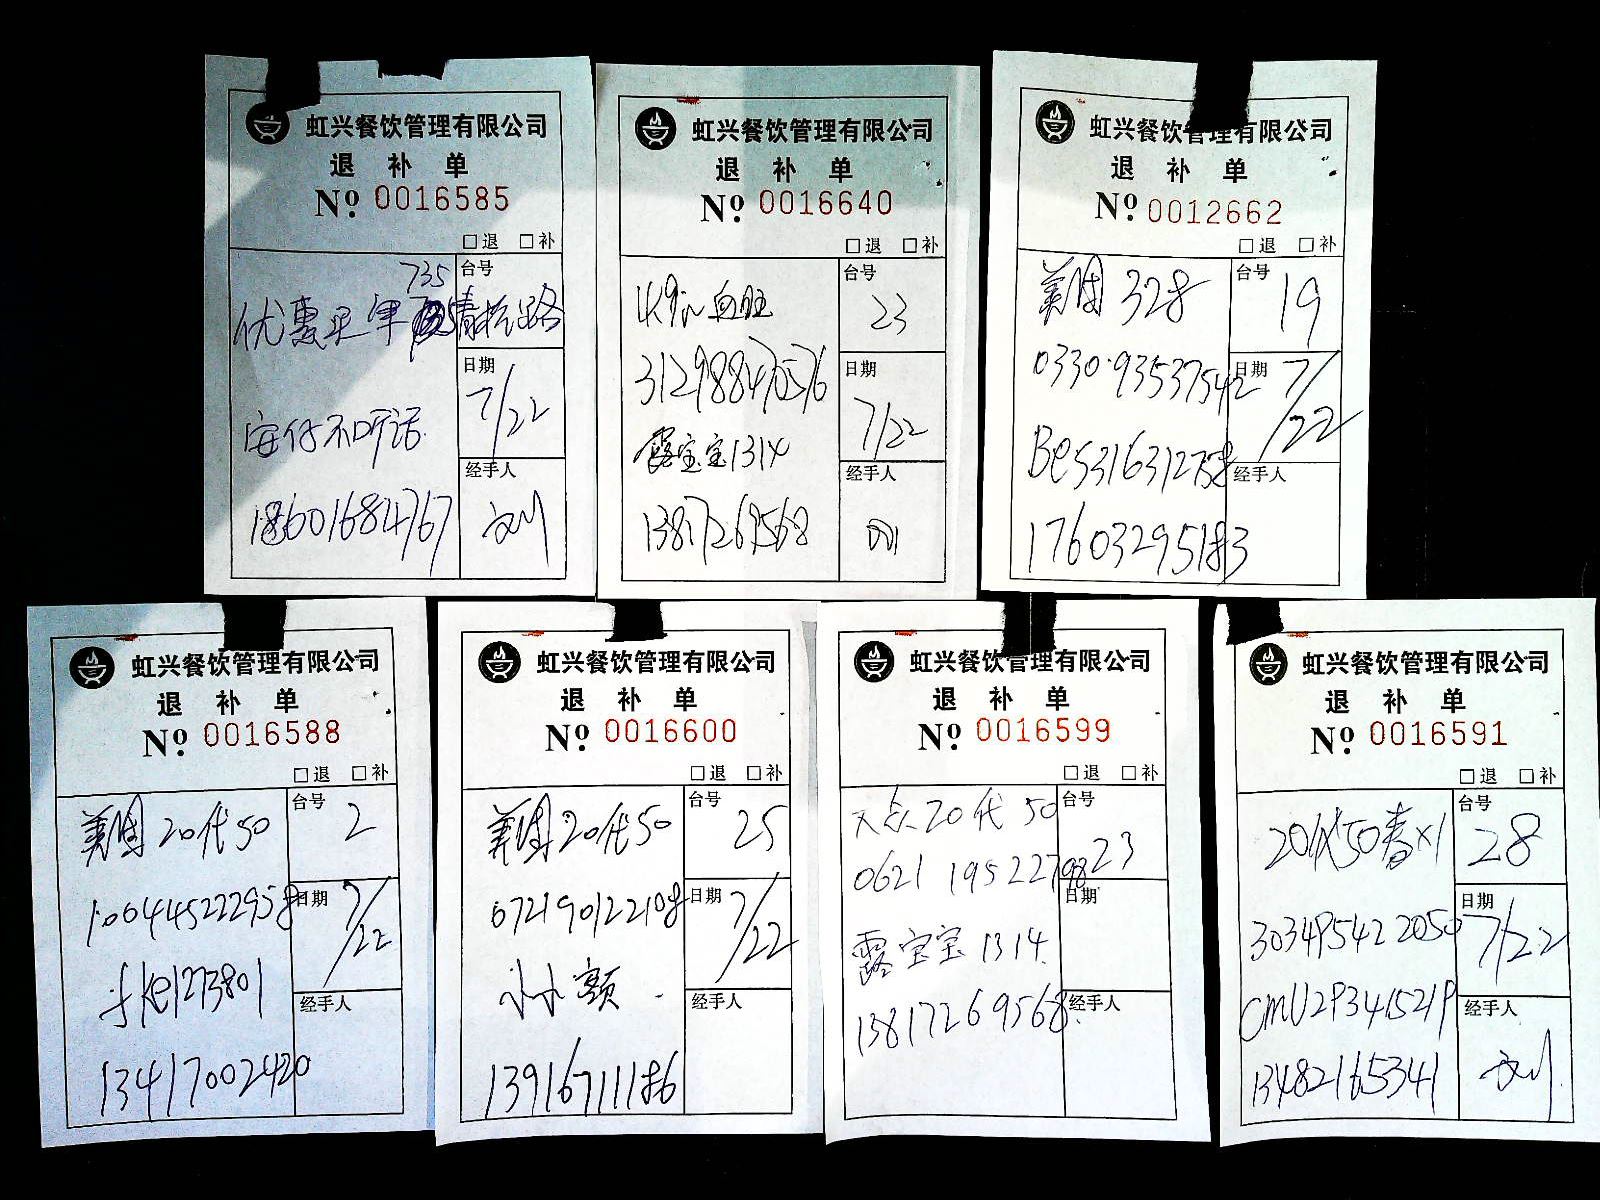 虹兴餐饮管理有限公司
退 补 单
Nº. 0016585
□退 □补
735
台号
优惠
日期
7/22
安仔不听话
经手人
18601684767
虹兴餐饮管理有限公司
退 补 单
Nº. 0016640
□退 □补
台号
23
血旺
日期
7/22
露宝宝1314
经手人
13817269568
虹兴餐饮管理有限公司
退 补 单
Nº. 0012662
□退 □补
台号
19
美团 328
0330 93537542
日期
7/22
经手人
17603295183
虹兴餐饮管理有限公司
退 补 单
Nº. 0016588
□退 □补
台号
2
美团 20代50
1004445222958
日期
7/22
经手人
13417002420
虹兴餐饮管理有限公司
退 补 单
Nº. 0016600
□退 □补
台号
25
美团 20代50
072190122108
日期
7/22
经手人
13916711186
虹兴餐饮管理有限公司
退 补 单
Nº. 0016599
□退 □补
台号
23
大众20代 50
0621 19522798
日期
露宝宝1314
经手人
13817269568
虹兴餐饮管理有限公司
退 补 单
Nº. 0016591
□退 □补
台号
28
20代50春×1
日期
7/22
303495422050
CMU2P341521P
经手人
13482165341